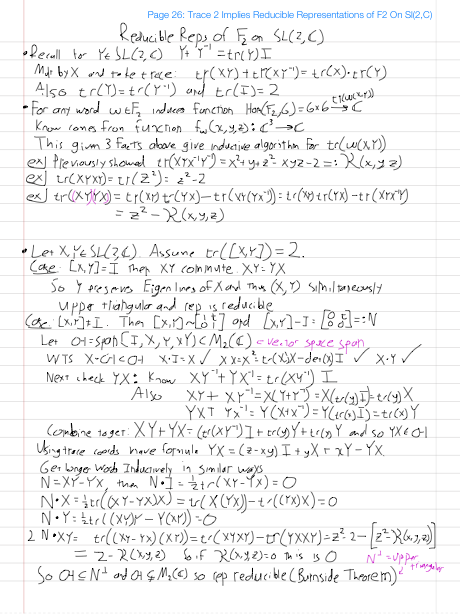 Page 26: Trace 2 Implies Reducible Representations of F2 On Sl(2,C)
Reducible Reps of F₂ on SL(2,ℂ)
• Recall for Y∈SL(2,ℂ) Y+Y⁻¹=tr(Y)I
Mult by X and take trace: tr(XY)+tr(XY⁻¹)=tr(X)·tr(Y)
Also tr(Y)=tr(Y⁻¹) and tr(I)=2
• For any word w∈F₂ induces function Hom(F₂,G)=G×G → ℂ tr(w(X,Y))
Know comes from function f_w(x,y,z): ℂ³→ℂ
This given 3 Facts above give inductive algorithm for tr(w(X,Y))
ex) Previously showed tr(XYX⁻¹Y⁻¹)=x²+y²+z²-xyz-2=: K(x,y,z)
ex) tr(XYXY)=tr(Z²)= z²-2
ex) tr((XY)(YX))=tr(XY)tr(YX)-tr(XY(YX)⁻¹)=tr(XY)tr(YX)-tr(XYX⁻¹Y⁻¹)
= z²-K(x,y,z)
• Let X,Y∈SL(2,ℂ). Assume tr([X,Y])=2.
Case: [X,Y]=I then XY commute XY=YX
So Y preserves Eigenlines of X and thus (X,Y) simultaneously
upper triangular and rep is reducible
Case: [X,Y]≠I. Then [X,Y]~[1 1; 0 1] and [X,Y]-I=[0 1; 0 0]=:N
Let OH=span(I,X,Y,XY)<M₂(ℂ) ← vector space span
WTS X·OH<OH X·I=X ✓ X·X=X²=tr(X)X-det(X)I ✓ X·Y ✓
Next check YX: Know XY⁻¹+YX⁻¹=tr(XY⁻¹) I
Also XY+XY⁻¹=X(Y+Y⁻¹)=X(tr(y)I)=tr(y)X
YX+YX⁻¹=Y(X+X⁻¹)=Y(tr(x)I)=tr(x)Y
Combine to get: XY+YX=(tr(XY⁻¹)I+tr(y)X+tr(x)Y and so YX∈OH
Using trace coords have formula YX=(z-xy)I+yX+xY-YX
Get longer words Inductively in similar ways
N=XY-YX then N·I=½tr(XY-YX)=0
N·X=½tr((XY-YX)X)=tr(X(YX))-tr((YX)X)=0
N·Y=½tr((XY)Y-Y(XY))=0
2 N·XY= tr((XY-YX)(XY))=tr(XYXY)-tr(YXXY)=z²-2-[z²-K(x,y,z)]
= 2-K(x,y,z) So if K(x,y,z)=0 this is 0 N^⊥=upper triangular
So OH⊆N^⊥ and OH⊊M₂(ℂ) so rep reducible (Burnside Theorem)